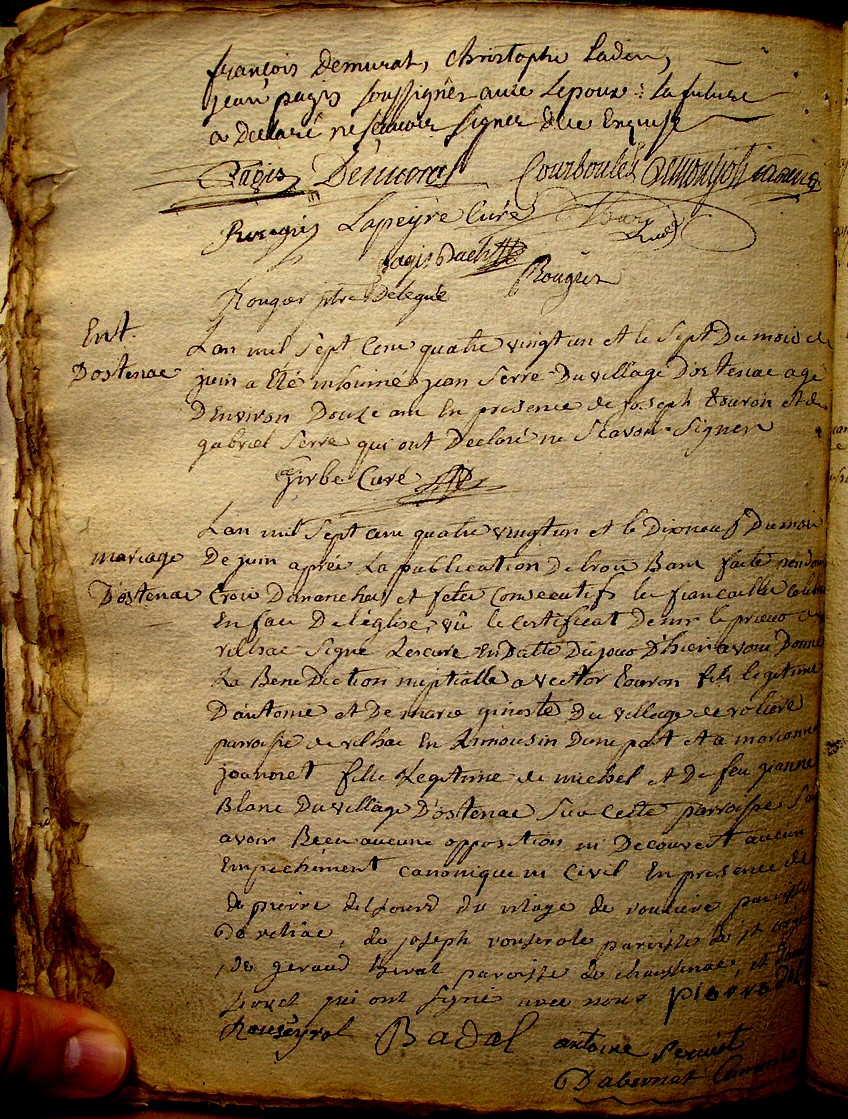 françois Demurat, christophe Ladou,
jean pagis soussignés avec L'epoux: la future
a Declaré ne scavoir signer De ce Enquise
Pagis Demurat Courboulès
Rougier Lapeyre Curé
pagis
Rougier
Rougier ptre Delegué
Ent.
D'ostenac
Lan mil sept cent quatre vingt un et le sept Du mois de
juin a été inhumé jean serre Du village D'ostenac agé
D'Environ Douze ans En presence de joseph Touron et de
gabriel serre qui ont Declaré ne scavoir signer
Girbe Curé
mariage
D'ostenac
Lan mil sept cent quatre vingt un et le Dixneuf Du mois
De juin après La publication De trois Bans faite pendant
trois Dimanches et fetes Consecutifs les fiancailles
En face De l'église, vû le certificat De mr le prieur
vilhac signé Lescure En Datte Du jour D'hier avons Donné
La Benediction nuptialle a victor Touron fils legitime
D'antoine et De marie gineste Du village de
parroisse de vilhac En Limousin D'une part et a marianne
jouvret fille Legitime de michel et De feu jeanne
Blanc Du village D'ostenac sur cette parroisse
avoir Reçu aucune opposition ni Decouvert aucun
Empechement canonique ni Civil En presence de
de pierre du vilage de paroisse
De vilhac, de joseph paroisse de st
, de geraud paroisse de chaussenac, et
qui ont signé avec nous pierre
Rouseyrol Badal antoine
Dabernat